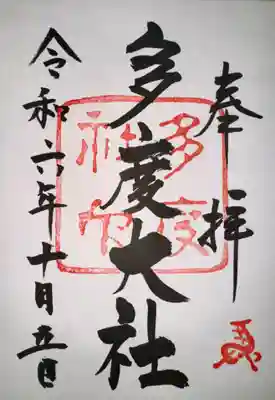 奉拝
多度大社
多度
神宮
令和六年十月五日